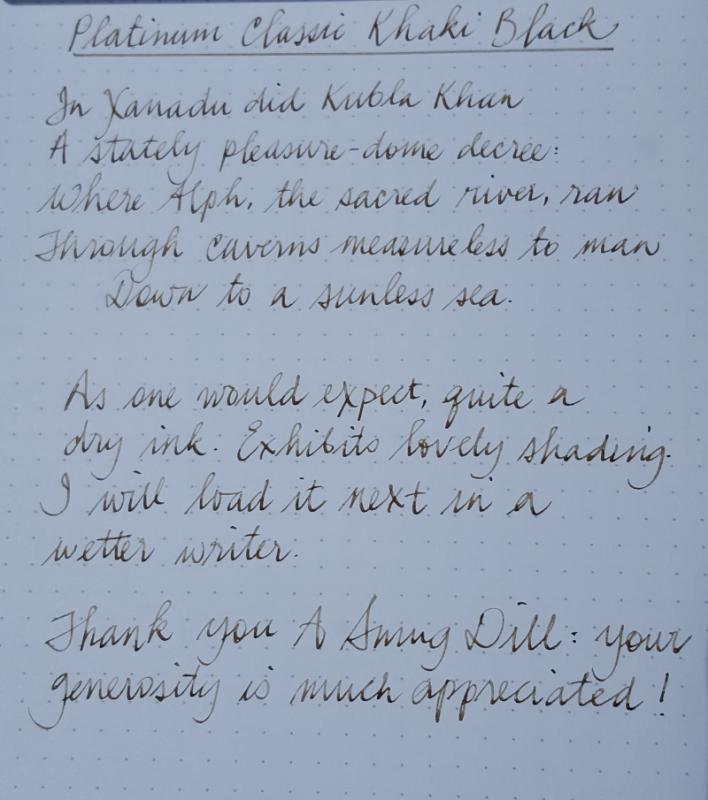 Platinum Classic Khaki Black
In Xanadu did Kubla Khan
A stately pleasure-dome decree:
Where Alph, the sacred river, ran
Through caverns measureless to man
Down to a sunless sea.
As one would expect, quite a
dry ink. Exhibits lovely shading.
I will load it next in a
wetter writer.
Thank you A Smug Dill: your
generosity is much appreciated!